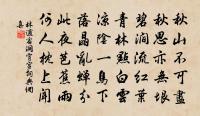 秋山不可盡
秋思亦無垠
碧澗流紅葉
青林點白雲
涼陰一鳥下
落日亂蟬分
此夜芭蕉雨
何人枕上聞
林逋宿洞霄宮詞典網
集